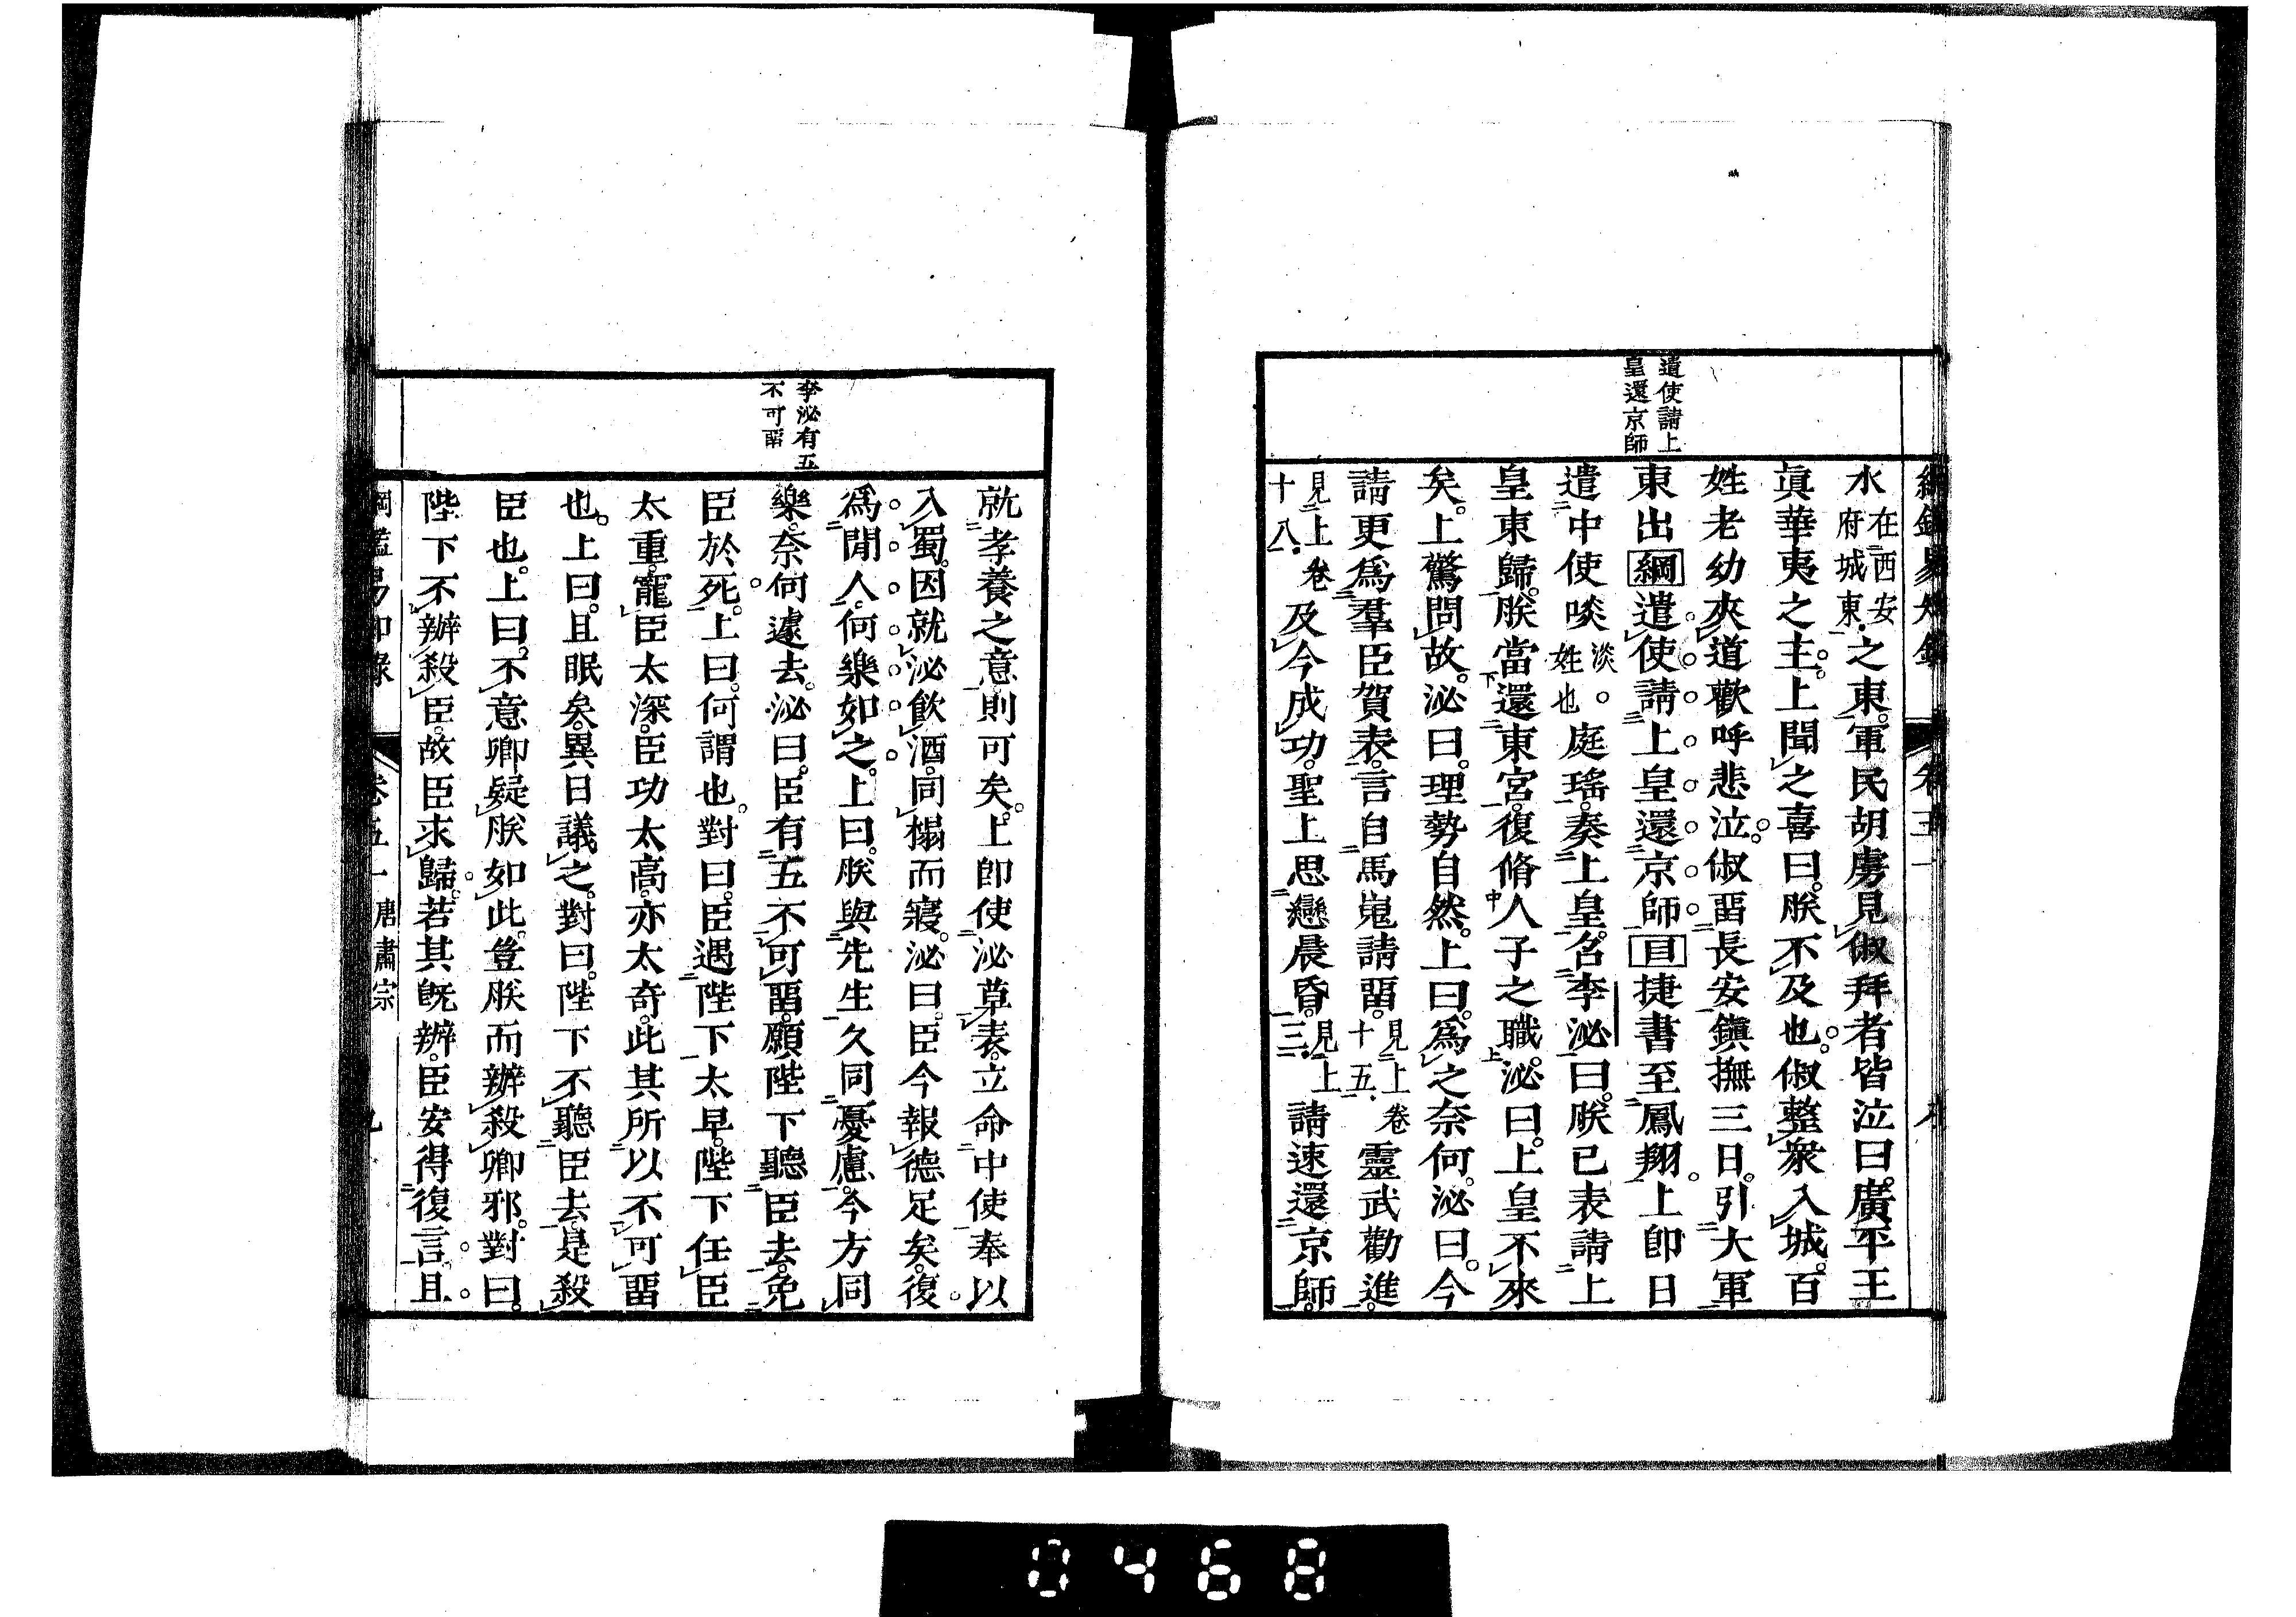 遣使請上
皇還京師
水在西安府城東之東。軍民胡虜見俶拜者皆泣曰。廣平王
眞華夷之主。上聞之喜曰。朕不及也。俶整衆入城。百
姓老幼夾道歡呼悲泣。俶畱長安鎭撫三日。引大軍
東出綱遣使請上皇還京師目捷書至鳳翔。上卽日
遣中使啖淡姓也。庭瑤。奏上皇。召李泌曰。朕已表請上
皇東歸。朕當還東宮。復脩人子之職。泌曰。上皇不來
矣。上驚問故。泌曰。理勢自然。上曰。爲之奈何。泌曰。今
請更爲羣臣賀表。言自馬嵬請畱。見上卷十五靈武勸進。
見上卷十八及今成功。聖上思戀晨昏。見上三請速還京師。
李泌有五
不可畱
就孝養之意則可矣。上卽使泌草表。立命中使奉以
入蜀。因就泌飮酒。同榻而寢。泌曰。臣今報德足矣。復
爲閒人。何樂如之。上曰。朕與先生久同憂慮。今方同
樂。奈何遽去。泌曰。臣有五不可畱。願陛下聽臣去。免
臣於死。上曰。何謂也。對曰。臣遇陛下太早。陛下任臣
太重。寵臣太深。臣功太高。亦太奇。此其所以不可畱
也。上曰。且眠矣。異日議之。對曰。陛下不聽臣去。是殺
臣也。上曰。不意卿疑朕如此。豈朕而辦殺卿邪。對曰。
陛下不辦殺臣。故臣求歸。若其旣辦。臣安得復言。且
卷五一 唐肅宗
0468